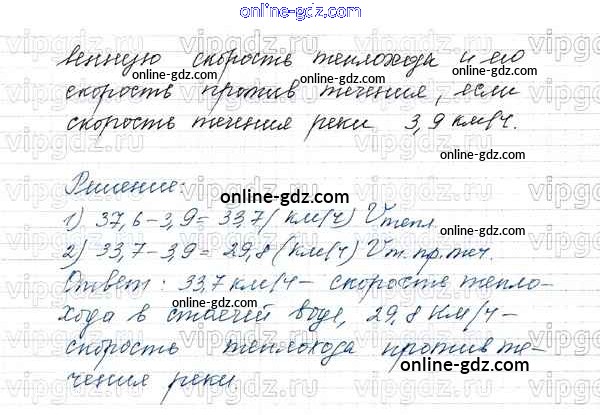 online-gdz.com
венную скорость теплохода и его
скорость против течения, если
скорость течения реки 3,9 км/ч.
Решение:
1) 37,6-3,9= 33,7( км/ч) Vтепл
2) 33,7-3,9= 29,8 (км/ч) Vт.пр.теч.
Ответ: 33,7 км/ч- скорость тепло-
хода в стоячей воде, 29,8 км/ч-
скорость теплохода против те-
чения реки
online-gdz.com
online-gdz.com
online-gdz.com
online-gdz.com
online-gdz.com
online-gdz.com
online-gdz.com
online-gdz.com